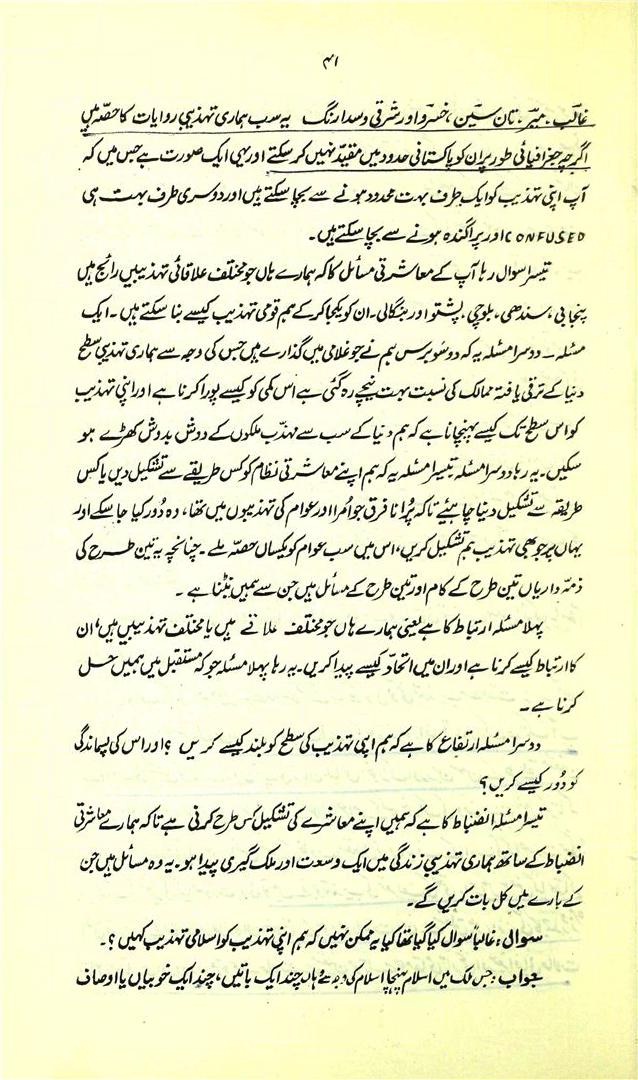 ۴۱
غالب۔ میر۔ تان سین، خسرو اور شرقی و سدا رنگ یہ سب ہماری تہذیبی روایات کا حصہ ہیں
اگرچہ جغرافیائی طور پر ان کو پاکستانی حدود میں مقید نہیں کر سکتے اور یہی ایک صورت ہے جس میں کہ
آپ اپنی تہذیب کو ایک طرف بہت محدود ہونے سے بچا سکتے ہیں اور دوسری طرف بہت ہی
CONFUSED اور پراگندہ ہونے سے بچا سکتے ہیں۔
تیسرا سوال رہا آپ کے معاشرتی مسائل کا کہ ہمارے ہاں جو مختلف علاقائی تہذیبیں رائج ہیں
پنجابی، سندھی، بلوچی، پشتو اور بنگالی۔ ان کو یکجا کر کے ہم قومی تہذیب کیسے بنا سکتے ہیں۔ ایک
مسئلہ۔ دوسرا مسئلہ یہ کہ دو سو برس ہم نے جو غلامی میں گذارے ہیں جس کی وجہ سے ہماری تہذیبی سطح
دنیا کے ترقی یافتہ ممالک کی نسبت بہت نیچے رہ گئی ہے اس کمی کو کیسے پورا کرنا ہے اور اپنی تہذیب
کو اس سطح تک کیسے پہنچانا ہے کہ ہم دنیا کے سب سے مہذب ملکوں کے دوش بدوش کھڑے ہو
سکیں۔ یہ رہا دوسرا مسئلہ۔ تیسرا مسئلہ یہ کہ ہم اپنے معاشرتی نظام کو کس طریقے سے تشکیل دیں یا کس
طریقہ سے تشکیل دینا چاہیئے تاکہ پرانا فرق جو امرا اور عوام کی تہذیبوں میں تھا، وہ دُور کیا جا سکے اور
یہاں پر جو بھی تہذیب ہم تشکیل کریں، اس میں سب عوام کو یکساں حصہ ملے۔ چنانچہ یہ تین طرح کی
ذمہ داریاں تین طرح کے کام اور تین طرح کے مسائل ہیں جن سے ہمیں نبٹنا ہے۔
پہلا مسئلہ ارتباط کا ہے یعنی ہمارے ہاں جو مختلف علاقے ہیں یا مختلف تہذیبیں ہیں، ان
کا ارتباط کیسے کرنا ہے اور ان میں اتحاد کیسے پیدا کریں۔ یہ رہا پہلا مسئلہ جو کہ مستقبل میں ہمیں حل
کرنا ہے۔
دوسرا مسئلہ ارتفاع کا ہے کہ ہم اپنی تہذیب کی سطح کو بلند کیسے کریں؟ اور اس کی پسماندگی
کو دُور کیسے کریں؟
تیسرا مسئلہ انضباط کا ہے کہ ہمیں اپنے معاشرے کی تشکیل کس طرح کرنی ہے تاکہ ہمارے معاشرتی
انضباط کے ساتھ ہماری تہذیبی زندگی میں ایک وسعت اور ملک گیری پیدا ہو۔ یہ وہ مسائل ہیں جن
کے بارے میں کل بات کریں گے۔
سوال: غالباً سوال کیا گیا تھا کیا یہ ممکن نہیں کہ ہم اپنی تہذیب کو اسلامی تہذیب کہیں؟۔
جواب: جس ملک میں اسلام پہنچا اسلام کی وجہ سے ہاں چند ایک باتیں، چند ایک خوبیاں یا اوصاف